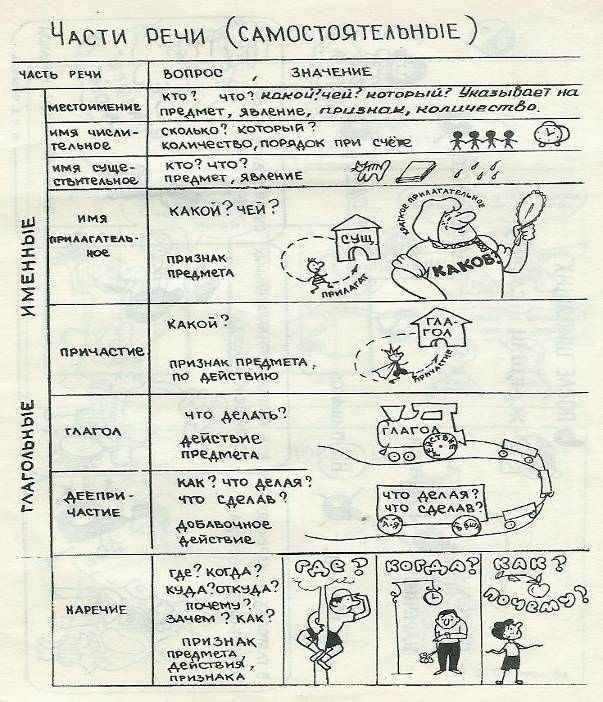 Части речи (самостоятельные)
часть речи вопрос, значение
местоимение
кто? что? какой? чей? который? Указывает на
предмет, явление, признак, количество.
имя числи-
тельное
сколько? который?
количество, порядок при счёте
имя суще-
ствительное
кто? что?
предмет, явление
именные
имя
прилагатель-
ное
какой? чей?
признак
предмета
сущ
прилагат
краткое прилагательное
каков?
причастие
какой?
признак предмета,
по действию
гла-
гол
причастие
глагольные
глагол
что делать?
действие
предмета
глагол
действие
деепри-
частие
как? что делая?
что сделав?
добавочное
действие
что делая?
что сделав?
а-я
в вш
наречие
где? когда?
куда? откуда?
почему?
зачем? как?
признак
предмета,
действия,
признака
где?
когда?
как?
почему?